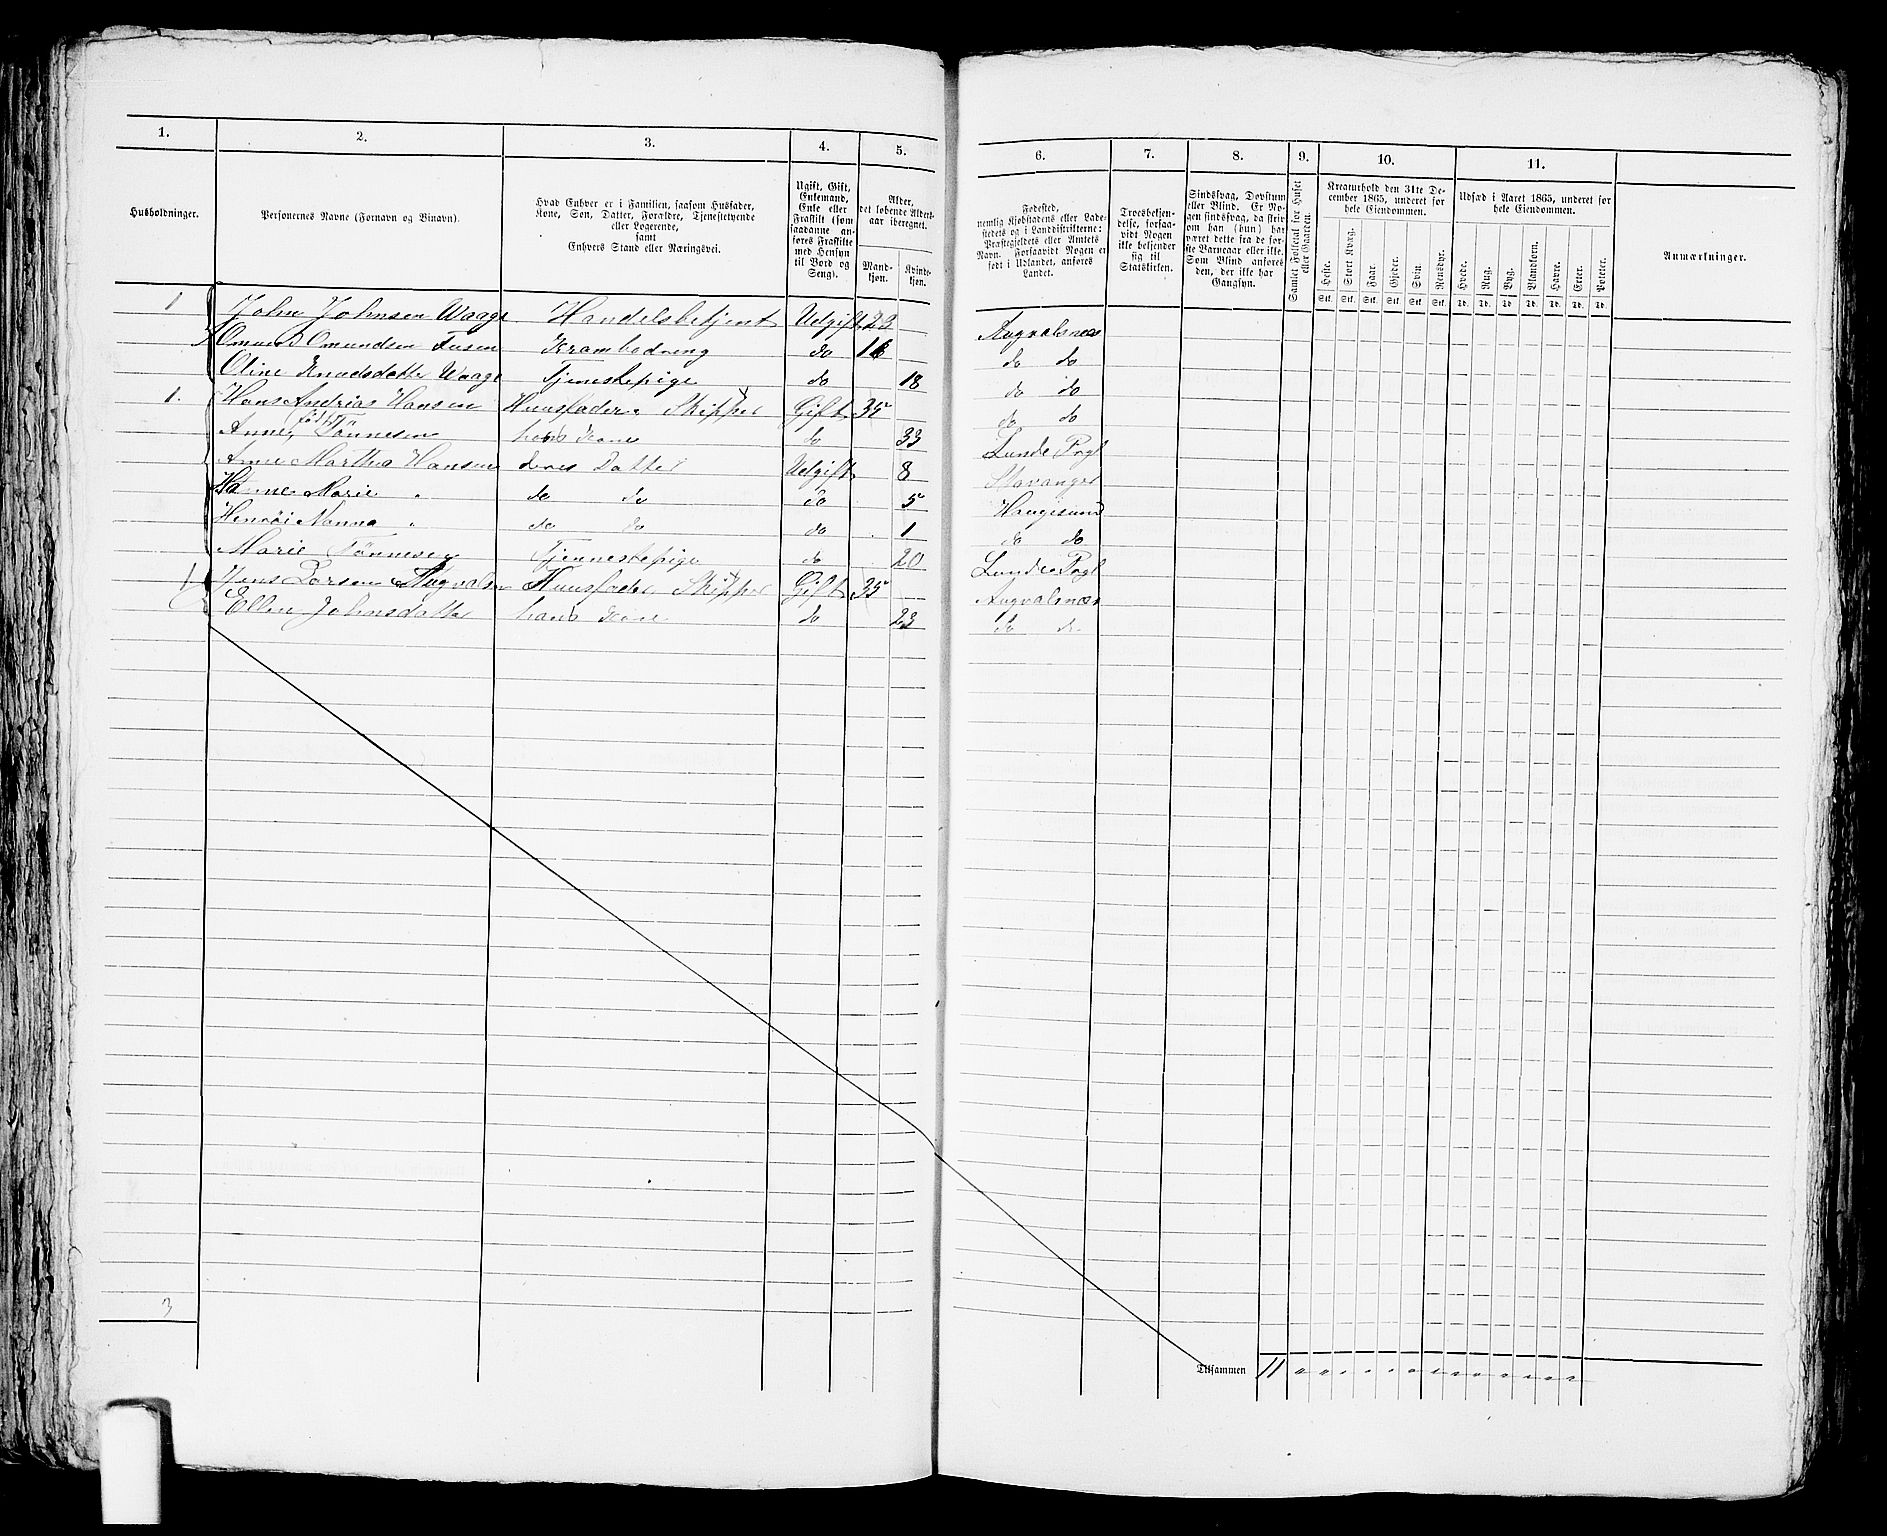 1. 2. 3. 4. 5. 6. 7. 8. 9. 10. 11.
Husholdninger.
Personernes Navne (Fornavn og Binavn).
Hvad Enhver er i Familien, saasom Husfader,
Kone, Søn, Datter, Forældre, Tjenestetyende
eller Logerende,
samt
Enhvers Stand eller Næringsvei.
Ugift, Gift,
Enkemand,
Enke eller
Fraskilt (som
saadanne an-
føres Fraskilte
med Hensyn
til Bord og
Seng).
Alder,
det løbende Alders-
aar iberegnet.
Mand-
kjøn.
Kvinde-
kjøn.
Fødested,
nemlig Kjøbstadens eller Lade-
stedets og i Landdistrikterne:
Præstegjeldets eller Amtets
Navn. Forsaavidt Nogen er
født i Udlandet, anføres
Landet.
Troesbekjen-
delse, forsaa-
vidt Nogen
ikke bekjender
sig til
Statskirken.
Sindssvag, Døvstum
eller Blind. Er No-
gen sindssvag, da skriv
om han (hun) har
været dette fra de før-
ste Barneaar eller ikke.
Som Blind anføres
den, der ikke har
Gangsyn.
Samlet Folketal for Huset
eller Gaarden.
Kreaturhold den 31te De-
cember 1865, underet for
hele Eiendommen.
Heste. Stort Kvæg. Faar. Gjeder. Svin. Rensdyr.
Stk. Stk. Stk. Stk. Stk. Stk.
Udsæd i Aaret 1865, underet for
hele Eiendommen.
Hvede. Rug. Byg. Blandkorn. Havre. Erter. Poteter.
Td. Td. Td. Td. Td. Td. Td.
Anmærkninger.
1 John Johnsen Waage Handelsbetjent Udgift 23 Augvalsnæs
Omund Omundsen Tusen Krambodreng do 16 do do
Oline Knudsdatter Waage Tjenestepige do 18 do do
1. Hans Andrias Hansen Huusfader Skipper Gift 35 do do
Anne, født Tønnesen hans Kone do 33 Lunde Pgl
Anne Martha Hansen deres Datter Udgift 8 Stavanger
Hanne Marie " do do do 5 Haugesund
Nanna " do do do 1 do do
Marie Tønnesen Tjennestepige do 20 Lunde Pgl
1 Jens Larsen Augvalsn Huusfader Skipper Gift 35 Augvalsnæs
Ellen Johnsdatter hans Kone do 23 do do
3
Tilsammen 11